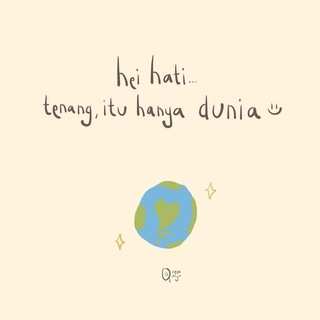 hei hati...
tenang, itu hanya dunia